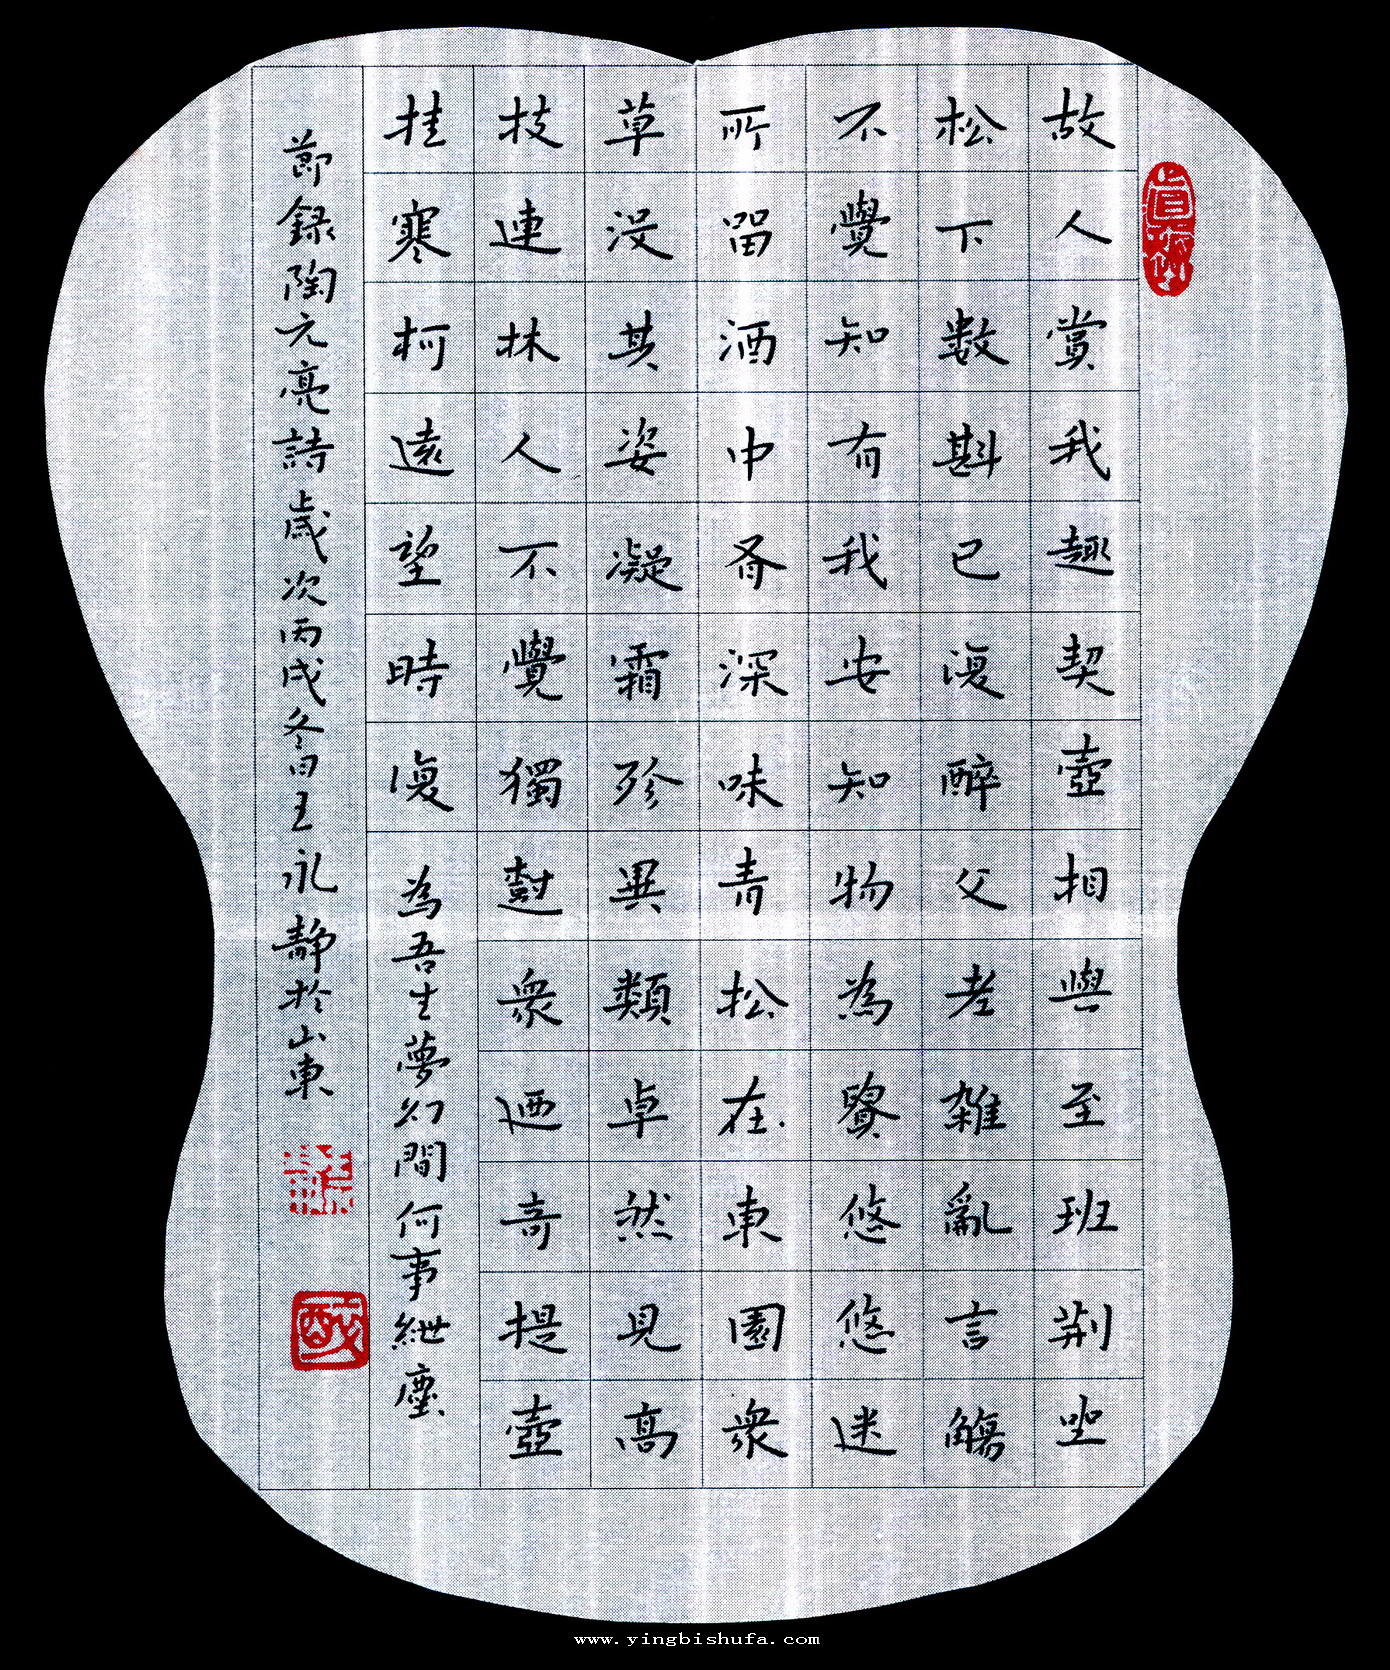 故人賞我趣契壺相與至班荆坐
松下數斟已復醉父老雜亂言觴
不覺知有我安知物為貴悠悠迷
所留酒中有深味青松在東園衆
草没其姿凝霜殄異類卓然見高
枝連林人不覺獨樹衆迺奇提壺
挂寒柯遠望時復為吾生夢幻間何事紲塵
節録陶元亮詩歲次丙戌冬日王永静於山東
www.yingbishufa.com